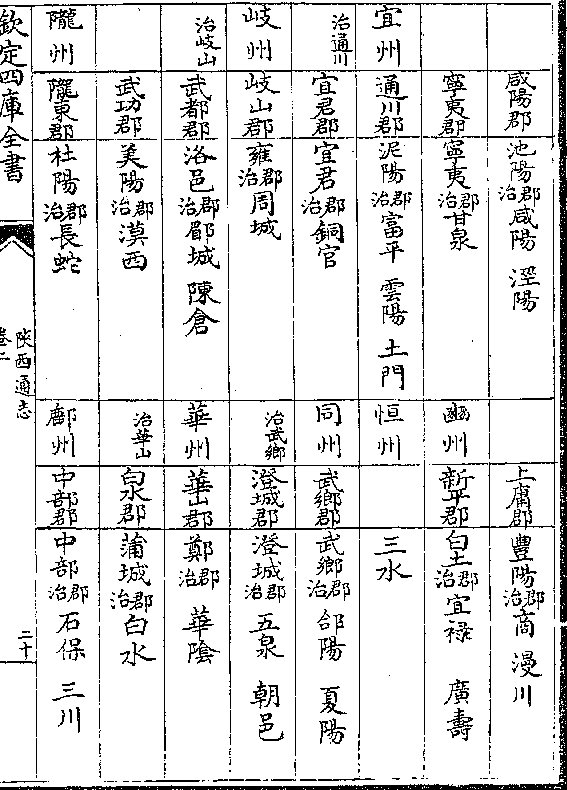 咸陽郡 池陽郡治咸陽 涇陽
寧夷郡 寧夷郡治甘泉
宜州 通川郡 泥陽郡治富平 雲陽 土門
治通川 宜君郡 宜君郡治銅官
岐州 岐山郡 雍郡治周城
治岐山 武都郡 洛邑郡治郿城 陳倉
武功郡 美陽郡治漠西
隴州 隴東郡 杜陽郡治長蛇
上庸郡 豐陽郡治商 漫川
豳州 新平郡 白土郡治宜祿 廣壽
恒州 三水
同州 武鄉郡 武鄉郡治郃陽 夏陽
治武鄉 澄城郡 澄城郡治五泉 朝邑
華州 華山郡 鄭郡治 華陰
治華山 白水郡 蒲城郡治白水
鄜州 中部郡 中部郡治石保 三川
欽定四庫全書
陝西通志
卷二
二十